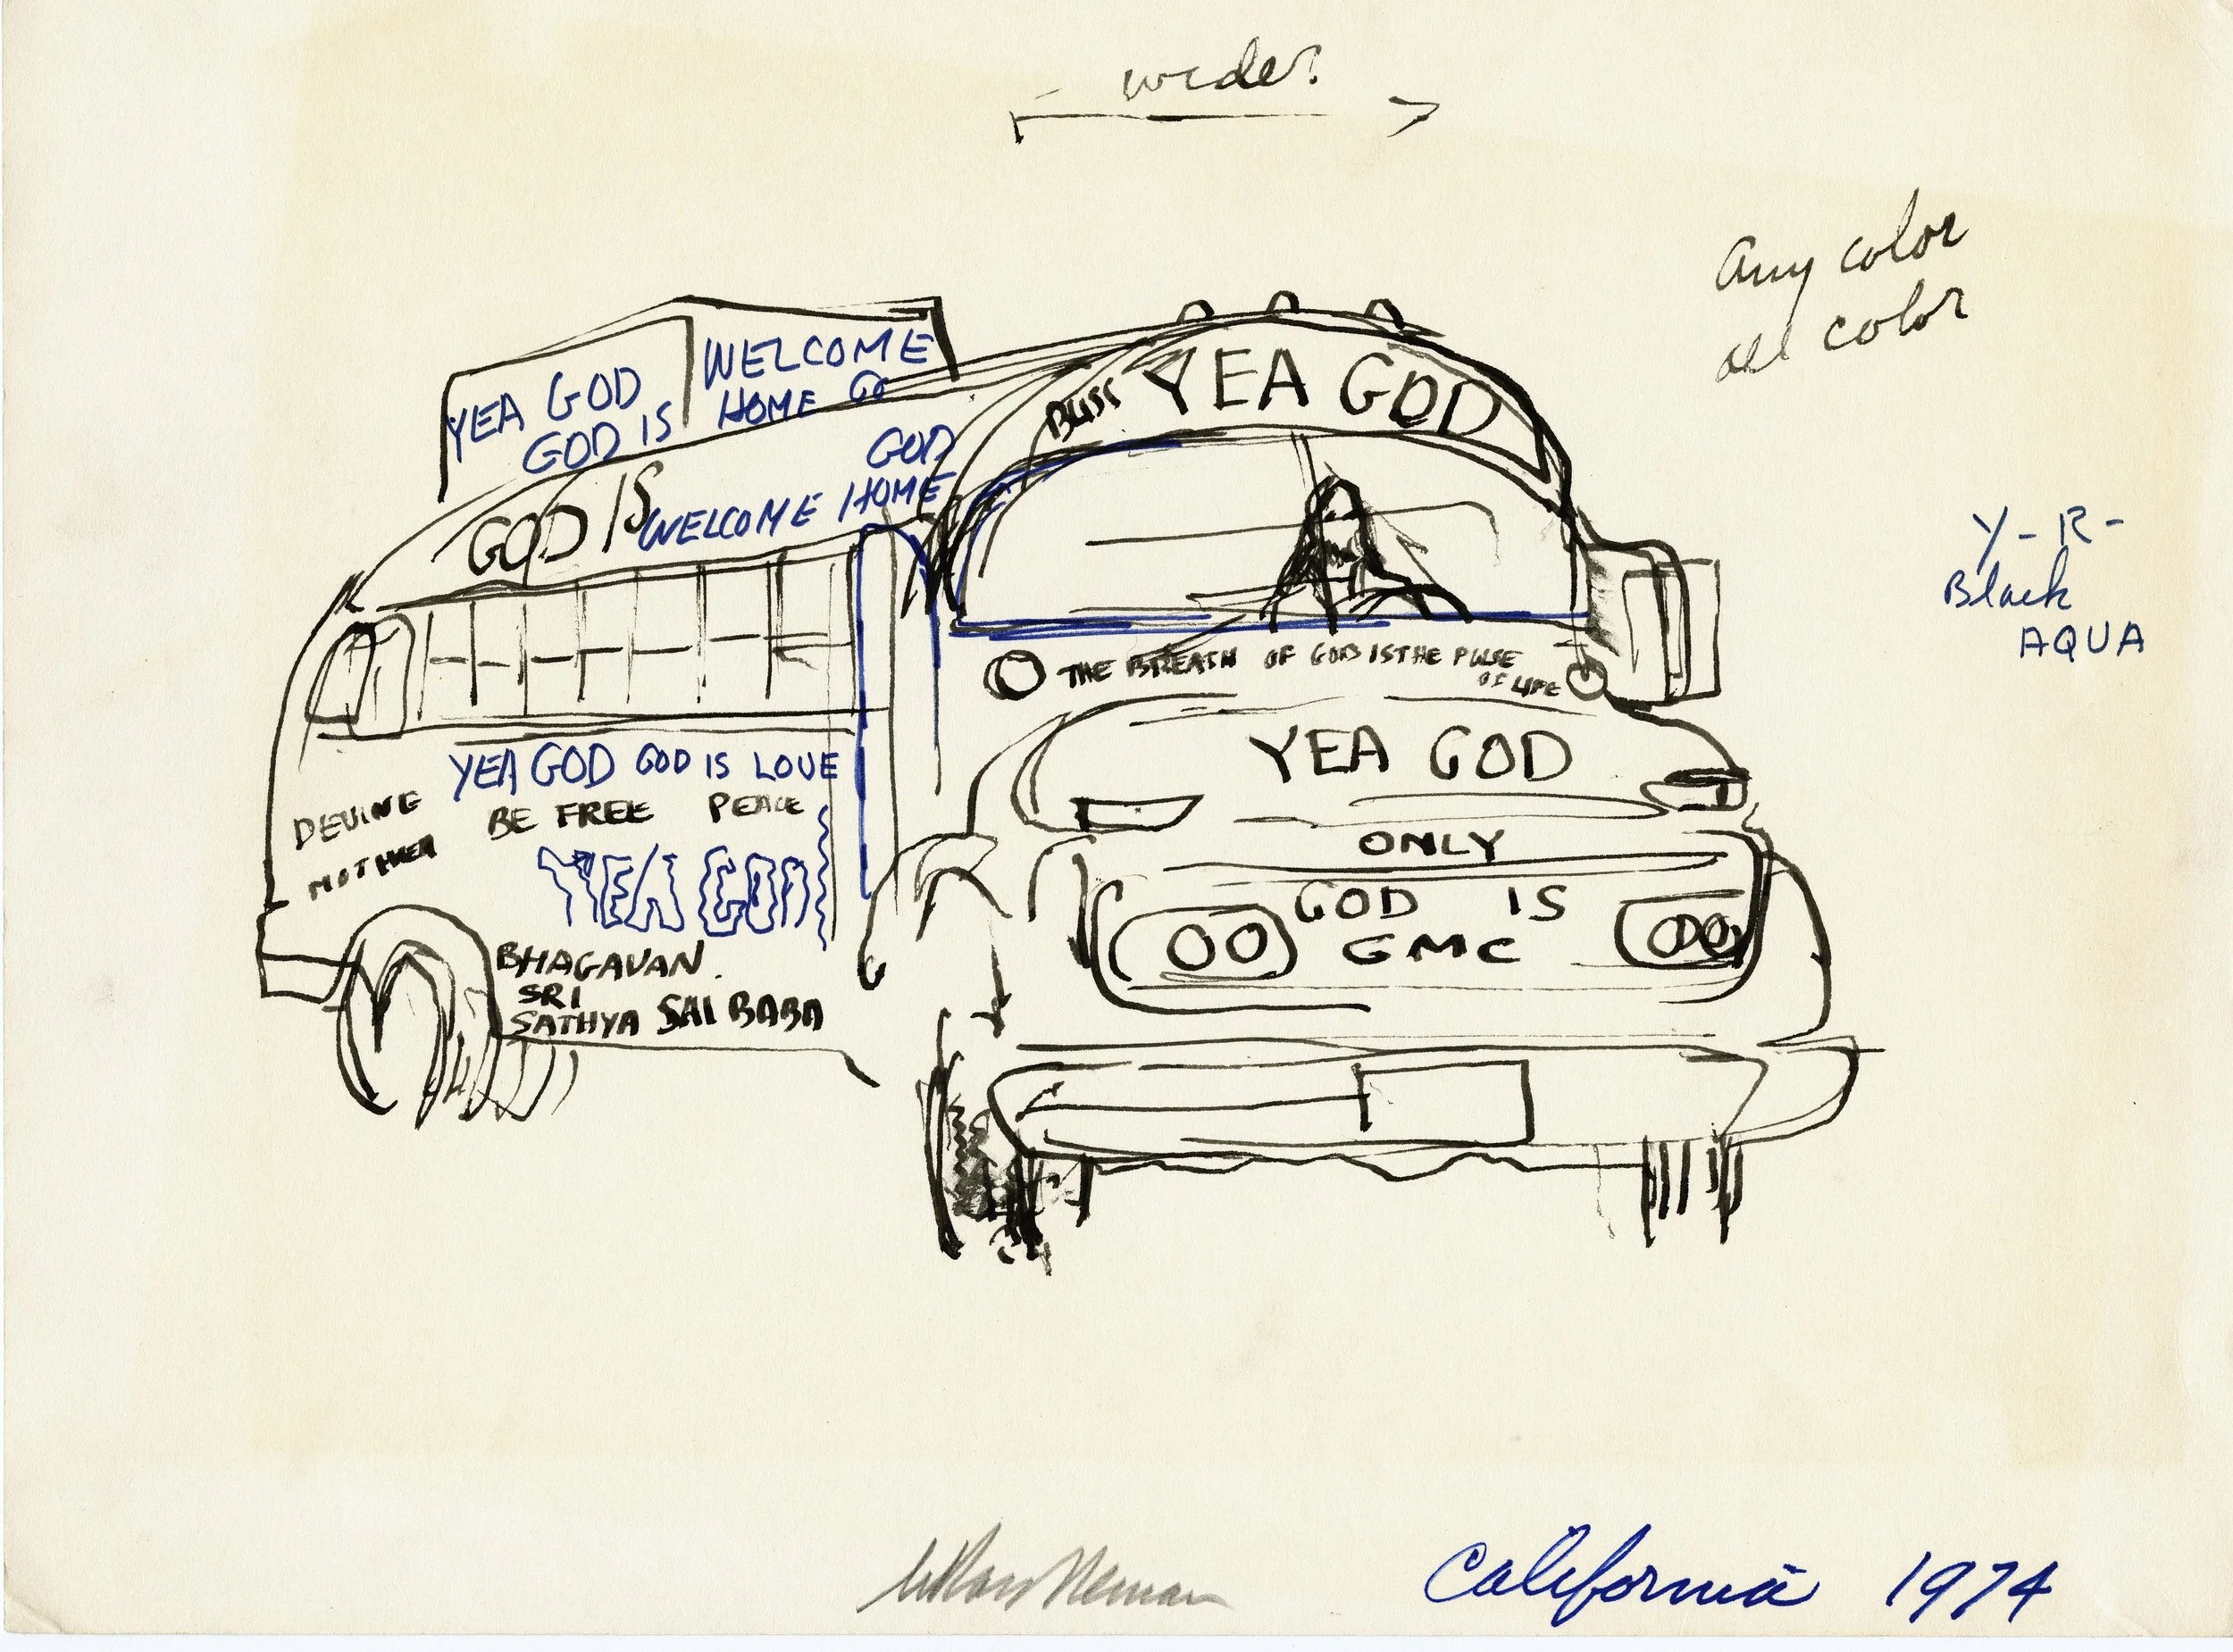 wider
Any color
all color
Y-R-
Black
AQUA
YEA GOD
GOD IS
WELCOME
HOME GO
GOD IS
GOD
WELCOME HOME
BLISS YEA GOD
THE BREATH OF GOD IS THE PULSE
OF LIFE
YEA GOD
ONLY
GOD IS
GMC
YEA GOD GOD IS LOVE
DEVINE
MOTHHER
BE FREE PEACE
YEA GOD
BHAGAVAN.
SRI
SATHYA SAI BABA
LeRoy Neiman
California 1974